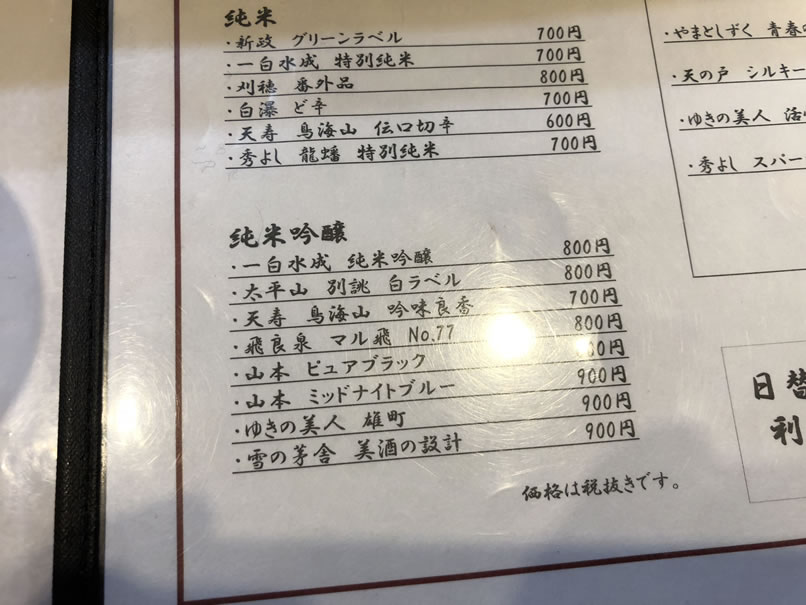 純米
・新政 グリーンラベル 700円
・一白水成 特別純米 700円
・刈穂 番外品 800円
・白瀑 ど辛 700円
・天寿 鳥海山 伝口切辛 600円
・秀よし 龍蟠 特別純米 700円
純米吟醸
・一白水成 純米吟醸 800円
・太平山 別誂 白ラベル 800円
・天寿 鳥海山 吟味良香 700円
・飛良泉 マル飛 No.77 800円
・山本 ピュアブラック 00円
・山本 ミッドナイトブルー 900円
・ゆきの美人 雄町 900円
・雪の茅舎 美酒の設計 900円
価格は税抜きです。
・やまとしずく 青春の
・天の戸 シルキー
・ゆきの美人 活
・秀よし スパー
日替
利